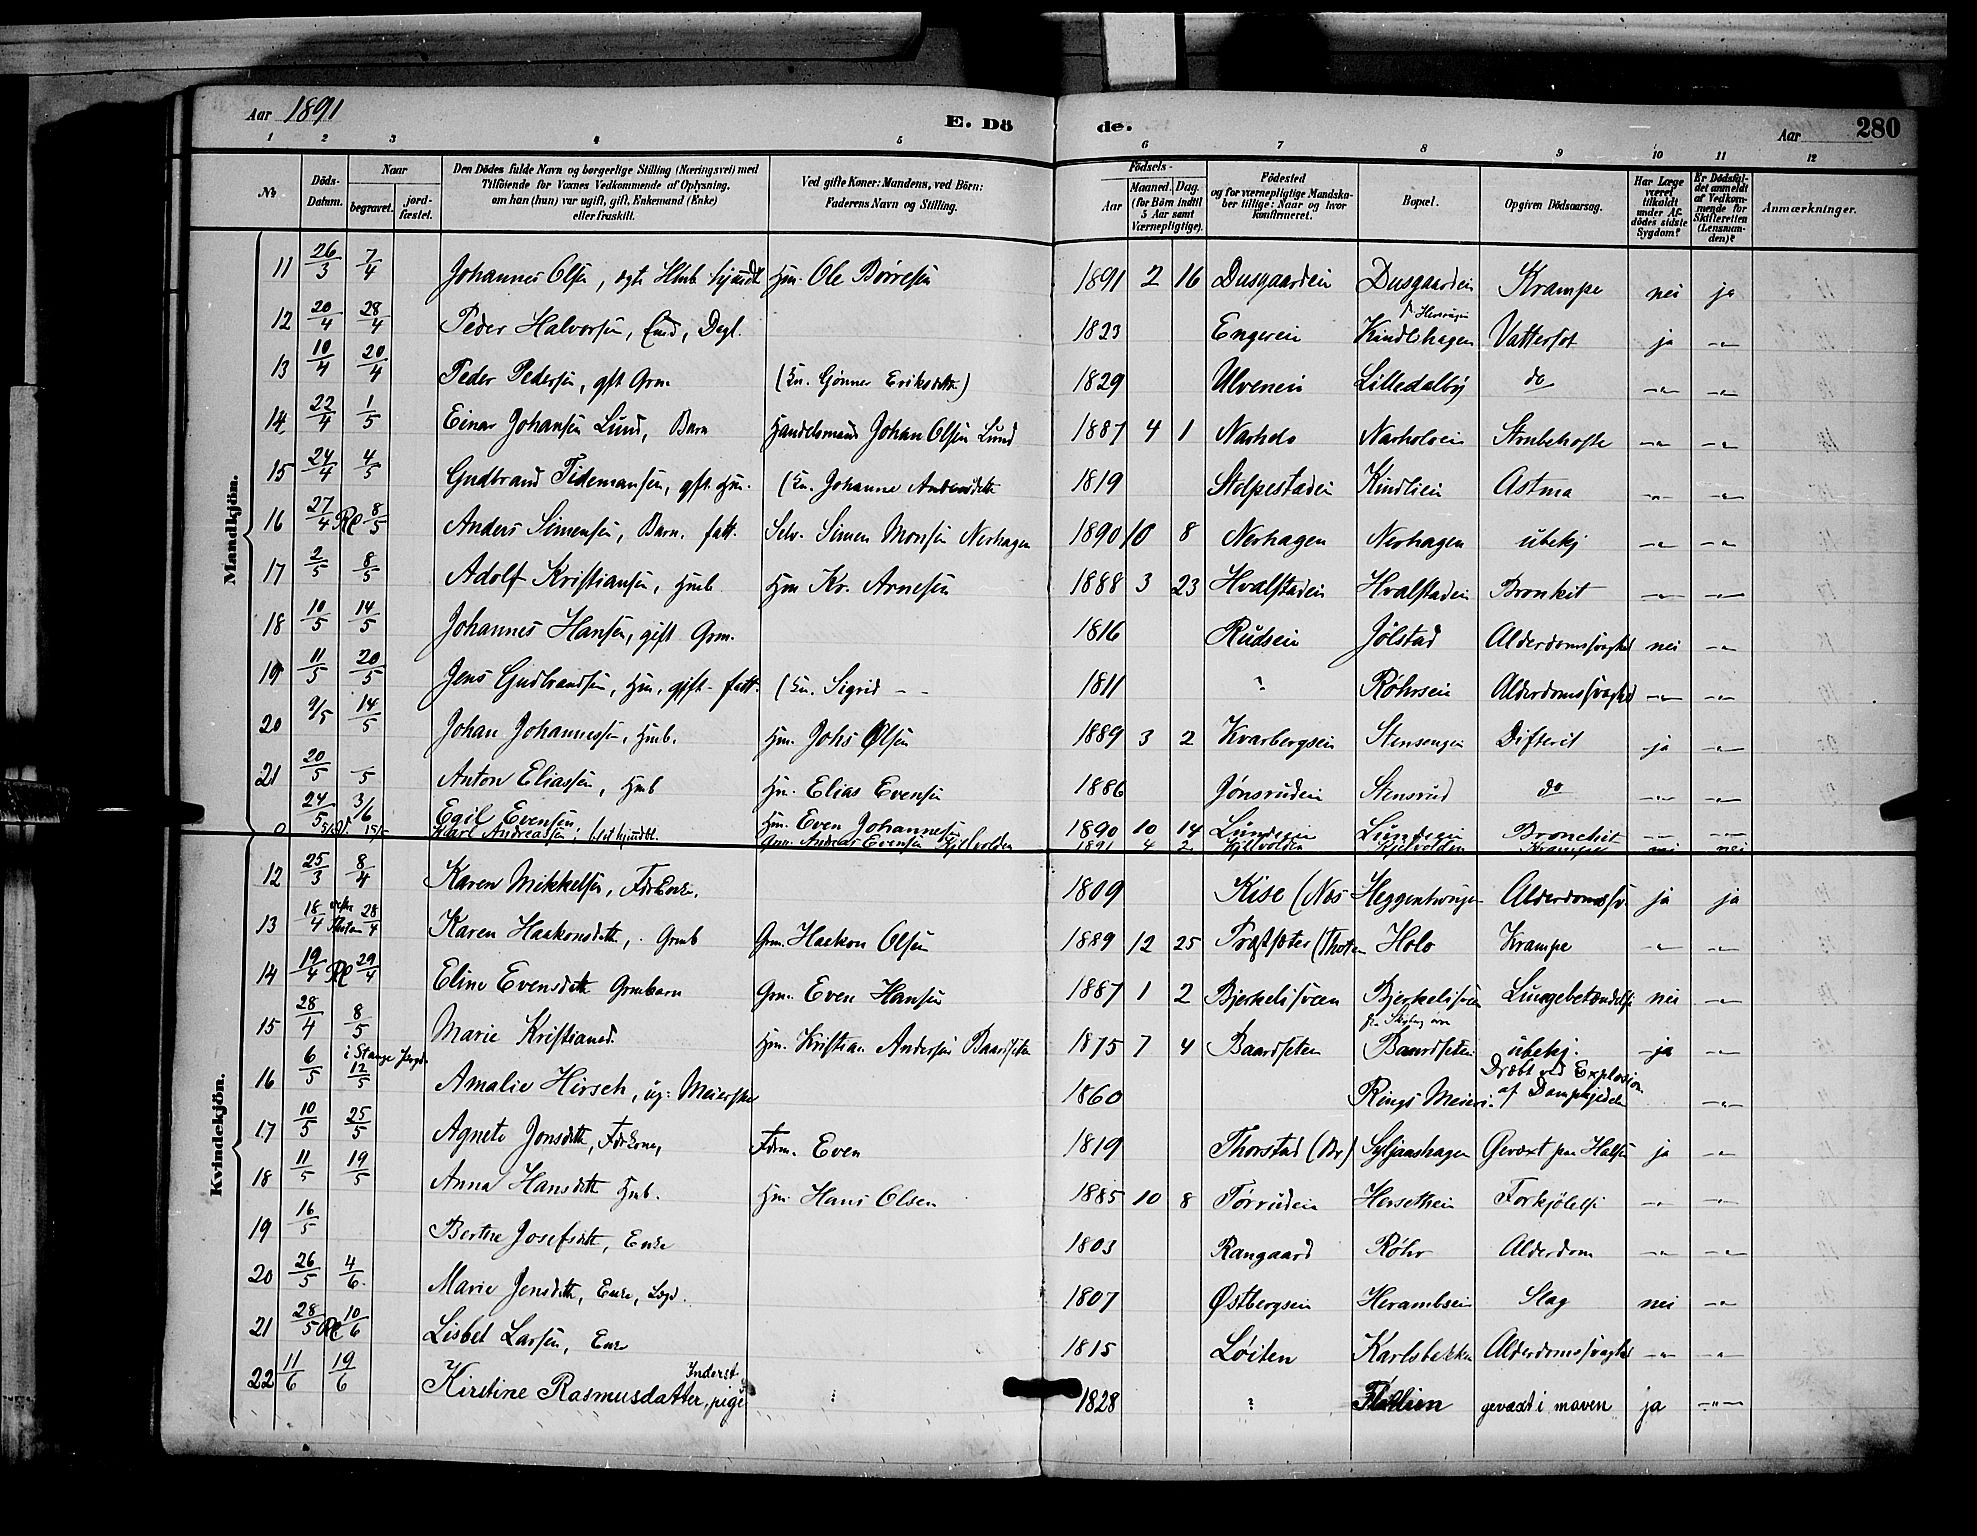 Aar 1891 E. Dö de. Aar 280
1 2 3 4 5 6 7 8 9 10 11 12
No
Döds-Datum.
Naar
begravet.
jord-fæstet.
Den Dödes fulde Navn og borgerlige Stilling (Næringsvei) med
Tilföiende for Voxnes Vedkommende af Oplysning,
om han (hun) var ugift, gift, Enkemand (Enke)
eller fraskilt.
Ved gifte Koner: Mandens, ved Börn:
Faderens Navn og Stilling.
Födsels-
Aar
Maaned. Dag.
(for Börn indtil
5 Aar samt
Værnepligtige).
Födested
og for værnepligtige Mandska-
ber tillige: Naar og hvor
konfirmeret.
Bopæl.
Opgiven Dödsaarsag.
Har Læge
været
tilkaldt
under Af-
dödes sidste
Sygdom?
Er Dödsfal-
det anmeldt
af Vedkom-
mende for
Skifteretten
(Lensman-
den)?
Anmærkninger.
Mandkjön.
11 26/3 7/4 Johannes Olsen, Hm. Ole Börresen 1891 2 16 Dusgaardein Dusgaardein Krampe nei ja
12 20/4 28/4 Peder Halvorsen, 1823 Engerein Kindlshagen Vattersot ja -"-
13 10/4 20/4 Peder Pedersen, gft Grm (Kn. Gönner Eriksdtr.) 1829 Ulvenein Lilledalby do -"- -"-
14 22/4 1/5 Einar Johansen Lund, Barn Handelsmand Johan Olsen Lund 1887 4 1 Narholo Narholoein Strubehoste -"- -"-
15 24/4 4/5 Gudbrand Tidemansen, gft. Hm. (Kn. Johanne Andersdtr 1819 Stolpestadein Kindliein Astma -"- -"-
16 27/4 8/5 Anders Simensen, Barn, fatt. Selv. Simen Monsen Nerhagen 1890 10 8 Nerhagen Nerhagen ubekj -"- -"-
17 2/5 8/5 Adolf Kristiansen, Hmb Hm Kr. Arnesen 1888 3 23 Hvalstadein Hvalstadein Bronkit -"- -"-
18 10/5 14/5 Johannes Hansen, gift Grm. 1816 Rudsein Jölstad Alderdomssvaghed nei -"-
19 11/5 20/5 Jens Gudbrandsen, Hm, gift - fatt. (Kn. Sigrid - - 1811 ? Röhrsein Alderdomssvaghed -"- -"-
20 9/5 14/5 Johan Johannessen, Hmb. Hm. Johs Olsen 1889 3 2 Kvarbergsein Stensengen Difterit ja -"-
21 20/5 /5 Anton Eliassen, Hmb Hm. Elias Evensen 1886 Jönsrudein Stensrud do -"- -"-
24/5 3/6 Egil Evensen Hm. Even Johannesen 1890 10 14 Lundein Lundein Bronchit -"- -"-
Karl Andreassen, Grm. Andreas Evensen Kjelvolden 1891 4 2 Kjelvolden Kjelvolden Krampe nei nei
Kvindekjön.
12 25/3 8/4 Karen Mikkelsen, 1809 Kise (Nes Heggentvingen Alderdomssv. ja ja
13 18/4 28/4 Karen Haakonsdtr, Grmb Grm. Haakon Olsen 1889 12 25 (Thoten Holo Krampe -"- -"-
14 19/4 29/4 Eline Evensdtr Grmbarn Grm. Even Hansen 1887 1 2 Bjerkelisveen Bjerkelisveen Lungebetændelse nei -"-
15 28/4 8/5 Marie Kristiansd. Hm. Kristian Andersen Baardseten 1875 7 4 Baardseten Baardseten ubekj. ja -"-
16 6/5 i Stange 12/5 Amalie Hirsch, ug: Meierske 1860 Rings Meieri Dræbt ved Explosion af Dampkjedelen -"-
17 10/5 25/5 Agnete Jonsdtr, Fdrkone, Fdrm. Even 1819 Thorstad (Br) Syljuashagen Gevæxt paa Halsen ja -"-
18 11/5 19/5 Anna Hansdtr Hmb. Hm Hans Olsen 1885 10 8 Törrudein Hersethein Forkjölelse -"- -"-
19 16/5 Berthe Josefsdtr, Enke 1803 Rangaard Röhr Alderdom -"- -"-
20 26/5 4/6 Marie Jensdtr, Enke, Lægd. 1807 Østbergsein Herambsein Slag nei -"-
21 28/5 10/6 Lisbet Larsen, Enke 1815 Löiten Karlsbakken Alderdomssvaghed -"- -"-
22 11/6 19/6 Kirstine Rasmusdatter, Inderst pige 1828 ? gevæxt i maven ja -"-